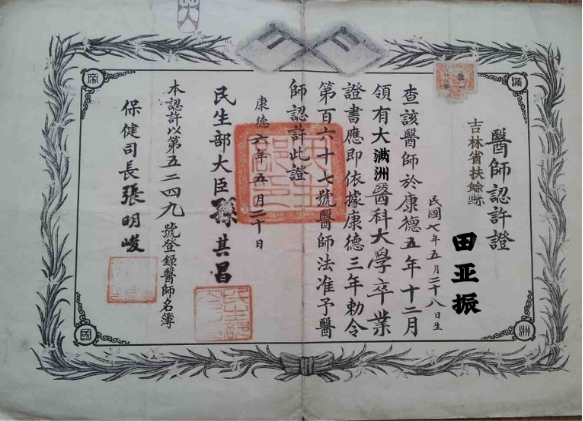 醫師認許證
吉林省扶餘縣
田亚振
民國七年五月二十八日生
查該醫師於康德五年十二月
領有大满洲醫科大學卒業
證書應即依據康德三年勅令
第一百六十七號醫師法准予醫
師認許此證
康德六年五月二十日
民生部大臣孫其昌
本認許以第五二四九號登錄醫師名簿
保健司長張明峻
滿
洲
帝
國